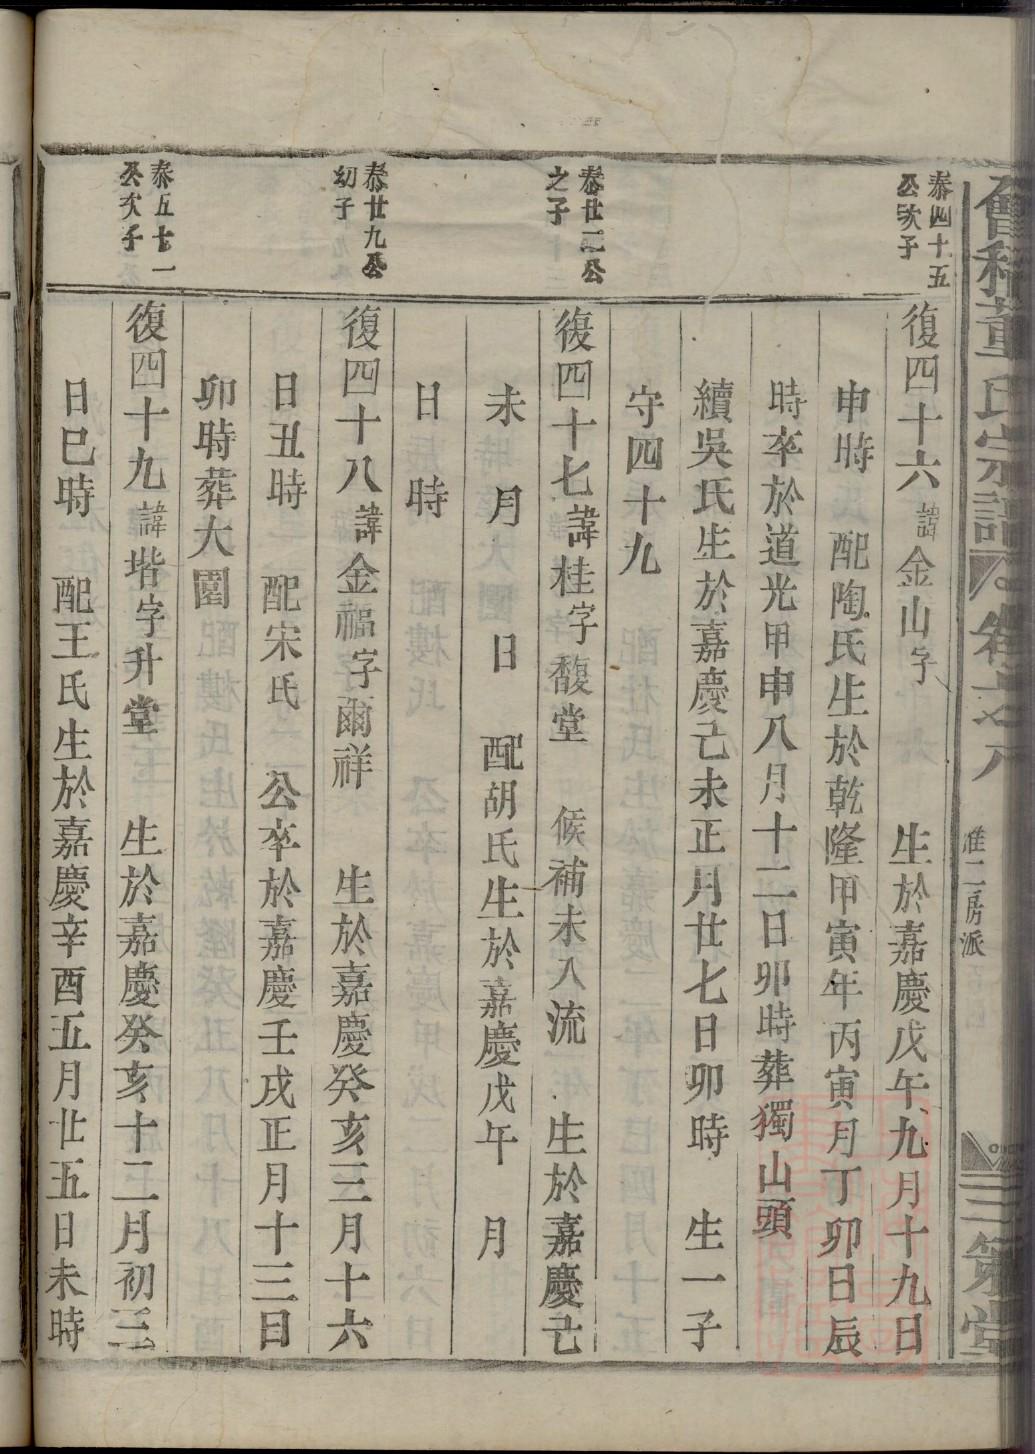 會稽董氏宗譜
卷之八
雅二房派
三策堂
泰四十五
公次子
復四十六諱金山字 生於嘉慶戊午九月十九日
申時 配陶氏生於乾隆甲寅年丙寅月丁卯日辰
時卒於道光甲申八月十二日卯時葬獨山頭
續吳氏生於嘉慶己未正月廿七日卯時 生一子
守四十九
泰廿二公
之子
復四十七諱桂字馥堂 候補未入流 生於嘉慶己
未 月 日 配胡氏生於嘉慶戊午 月
日 時
泰廿九公
幼子
復四十八諱金福字爾祥 生於嘉慶癸亥三月十六
日丑時 配宋氏 公卒於嘉慶壬戌正月十三日
卯時葬大園
泰五十一
公次子
復四十九諱堦字升堂 生於嘉慶癸亥十二月初三
日巳時 配王氏生於嘉慶辛酉五月廿五日未時